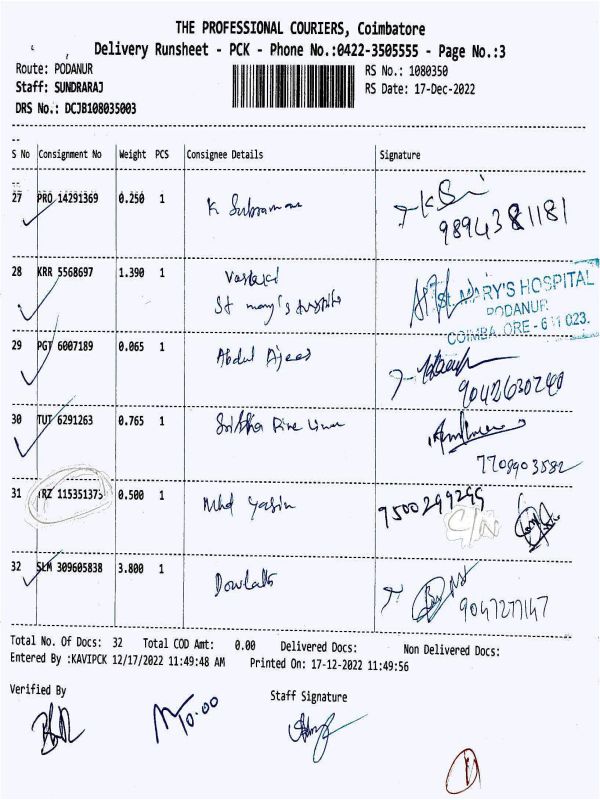 THE PROFESSIONAL COURIERS, Coimbatore
Delivery Runsheet - PCK - Phone No.:0422-3505555 - Page No.:3
Route: PODANUR
RS No.: 1080350
Staff: SUNDRARAJ
RS Date: 17-Dec-2022
DRS No.: DCJB108035003
S No Consignment No Weight PCS Consignee Details Signature
27 PRO 14291369 0.250 1 K Subramani
9894381181
28 KRR 5568697 1.390 1
St mary's
ST. MARY'S HOSPITAL
PODANUR
COIMBATORE - 641 023.
29 PGT 6007189 0.065 1 Abdul Ajees
9042630240
30 TUT 6291263 0.765 1
7708903582
31 TRZ 115351373 0.500 1 Mhd Yasin
9500299299
32 SLM 309605838 3.800 1
9047277147
Total No. Of Docs: 32 Total COD Amt: 0.00 Delivered Docs: Non Delivered Docs:
Entered By :KAVIPCK 12/17/2022 11:49:48 AM Printed On: 17-12-2022 11:49:56
Verified By
Staff Signature
10.00